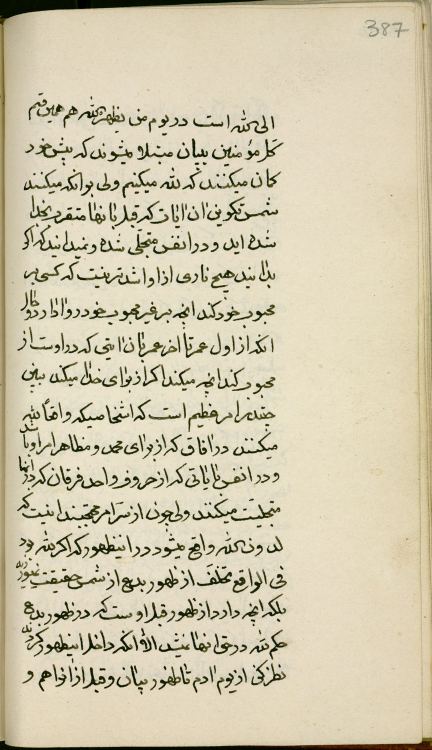 387
الی الله است در یوم من یظهره الله هم همین قسم
کل مؤمنین ببیان مبتلا میشوند که پیش خود
کمان میکنند که لله میکنیم ولی بوانکه میکنند
شمس تکوین ان ایات که قبل بانها متقرب بخدا
شده اید و در انفس متجلی شده و نمیدانید که اکر
بدانید هیچ ناری از او اشدتر نیست که کسی بر
محبوب خود کند انچه بر غیر محبوب خود روا ندارد و حال
انکه از اول عمر تا اخر عمر بان ایتی که در اوست از
محبوب کند انچه میکند اکر از برای خدا میکند ببین
چقدر امر عظیم است که اشخاصیکه واقعا لله
میکنند در افاق که از برای محمد و مظاهر امر او باشد
و در انفس بایاتی که از حروف واحد فرقان که در انها
متجلیست میکنند ولی چون از سر امر محتجبند اینست که
لدون الله واقع میشود در این ظهور که اکر لله بود
فی الواقع تخلف از ظهور بدیع از شمس حقیقت نمیورزید
بلکه انچه دارد از ظهور قبل اوست که در ظهور بدیع
حکم لله در حق انها نمیشد الا انکه داخل این ظهور کردند
نظر کن از یوم ادم تا ظهور بیان و قبل از ادم هم و